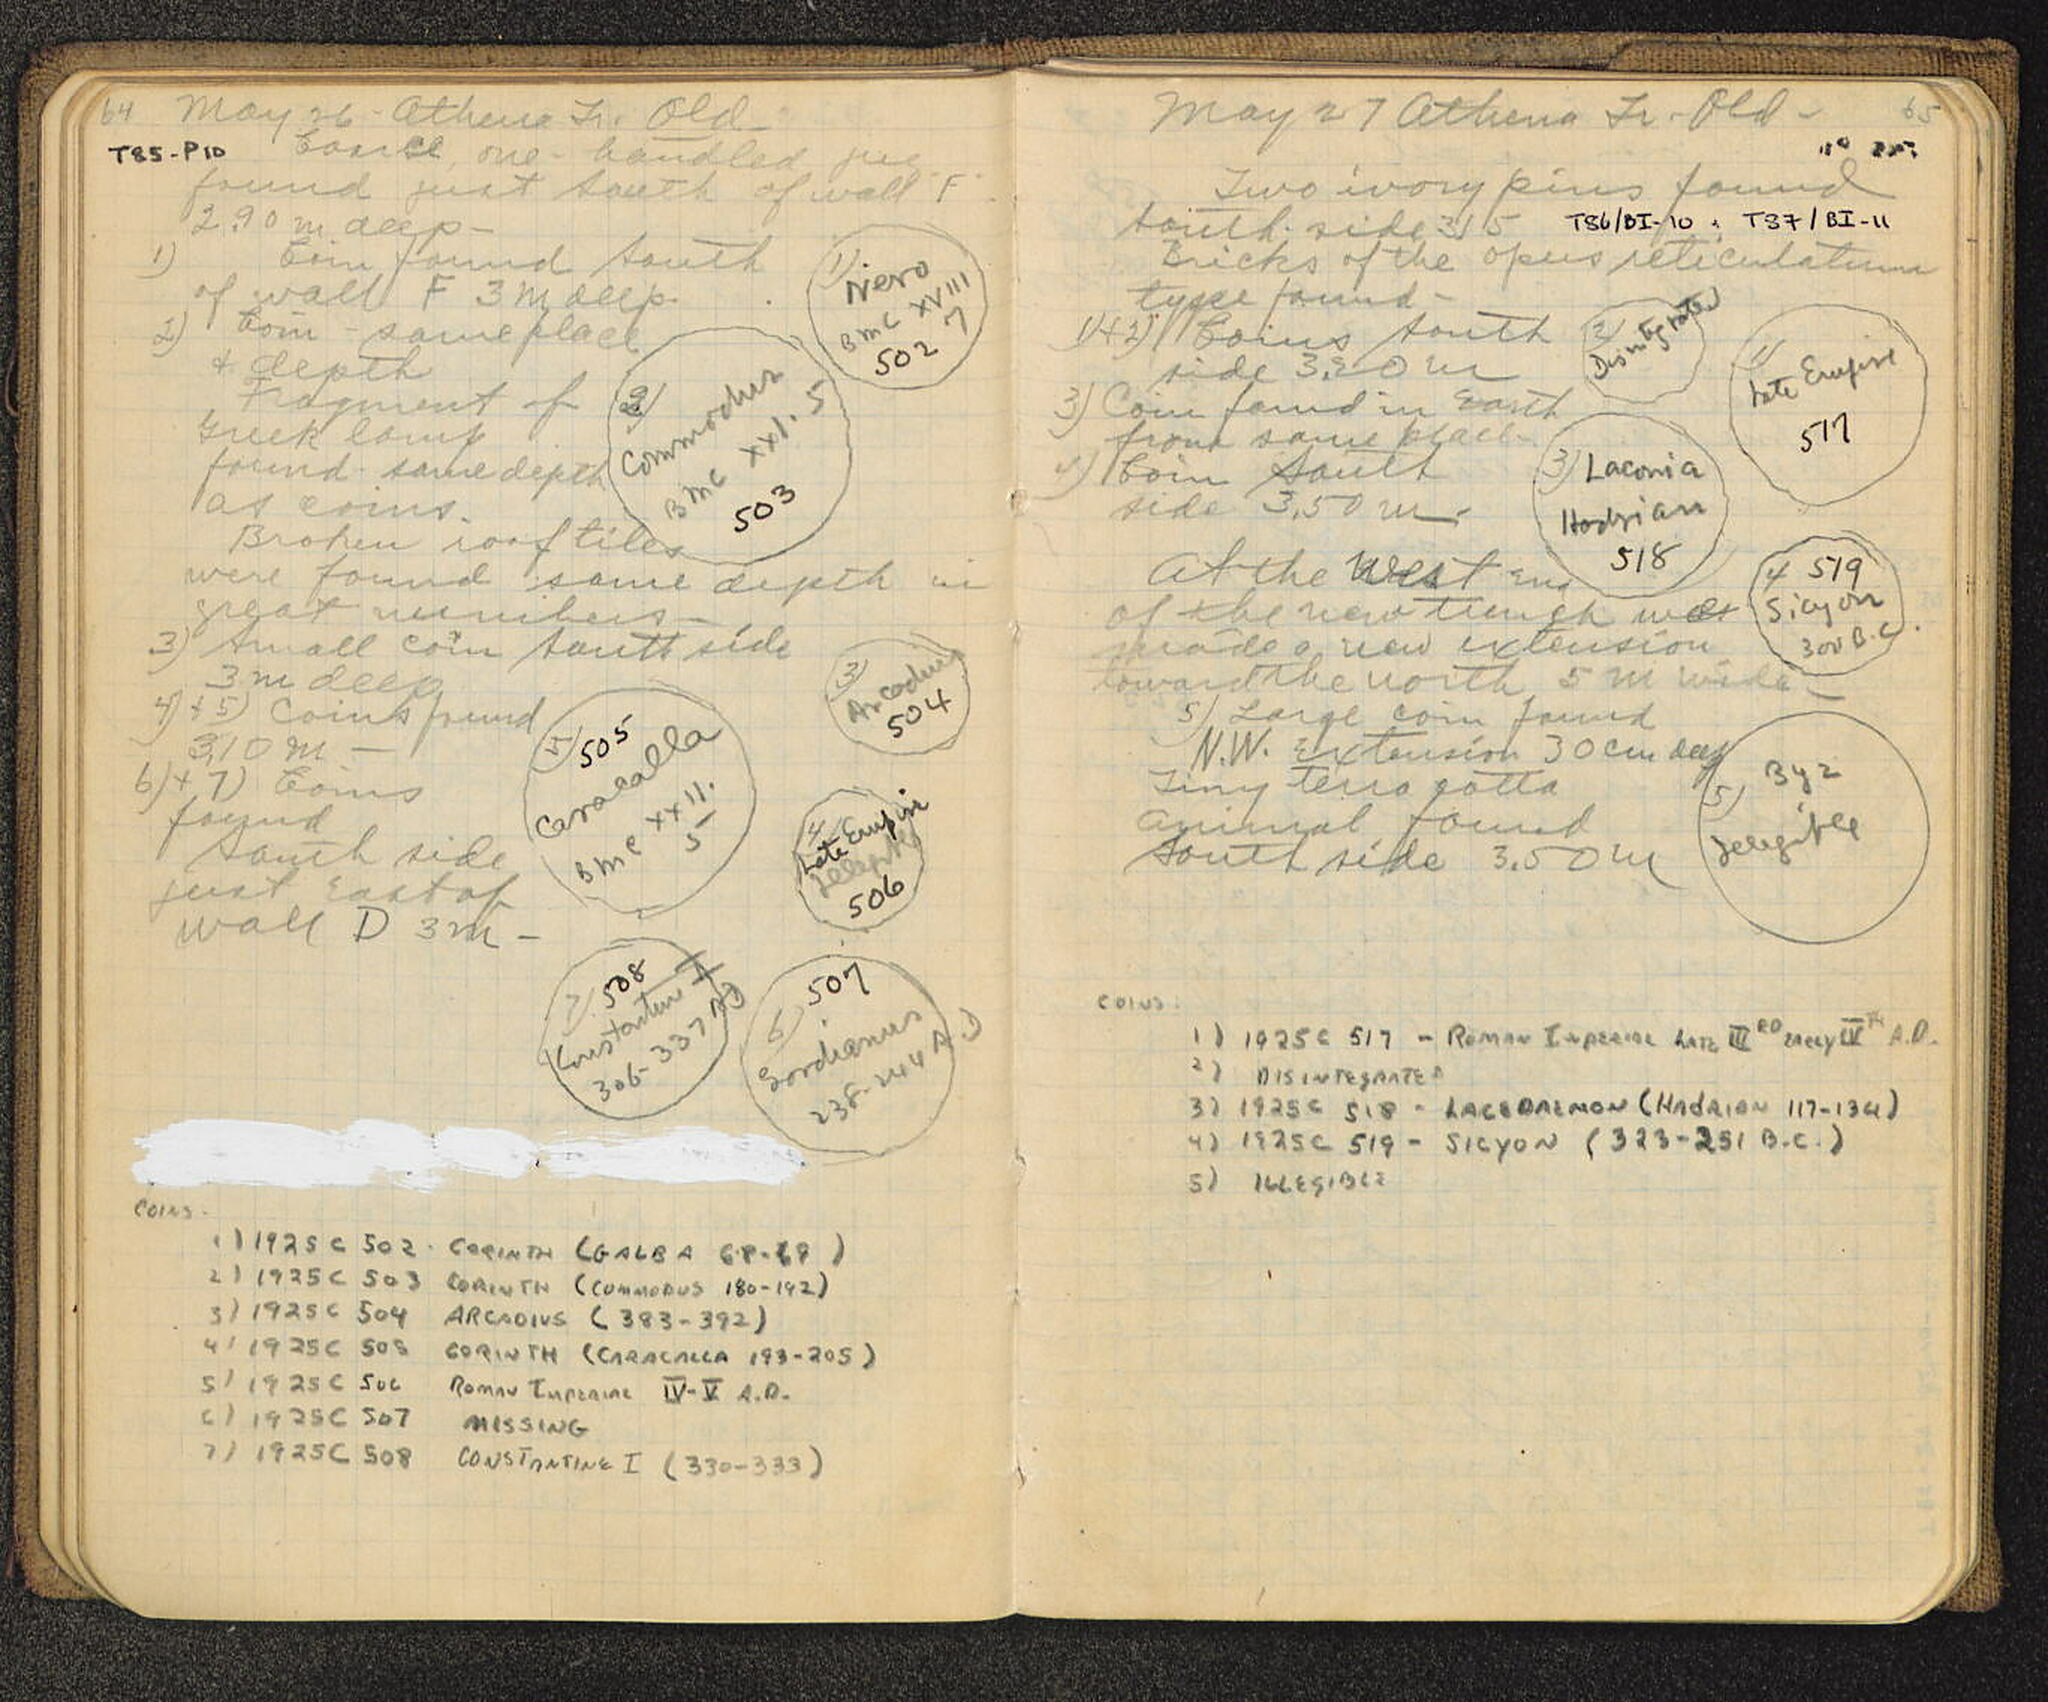 64 May 26 - Athena Tr. Old
T85-P10 Coarse, one-handled jug
found just south of wall "F"
2.90 m deep-
1) Coin found South
of wall F 3 m deep.
2) Coin - same place
+ depth
Fragment of
Greek lamp
found same depth
as coins.
Broken roof tiles
were found same depth in
great numbers -
3) Small coin South side
3 m deep
4) + 5) Coins found
3,10 m -
6) + 7) Coins
found
South side
just East of
wall D 3 m -
1)
Nero
BMC XVIII
7
502
2)
Commodus
BMC XXI. 5
503
3)
Arcadius
504
5) 505
Caracalla
BMC XXII.
5
4)
Late Empire
506
7) 508
Konstantinus I
306-337 AD
507
6)
Gordianus
238-244 A.D
COINS.
1) 1925 C 502 - CORINTH (GALBA 68-69)
2) 1925C 503 CORINTH (COMMODUS 180-192)
3) 1925C 504 ARCADIUS (383-392)
4) 1925C 505 CORINTH (CARACALLA 193-205)
5) 1925C 506 ROMAN IMPERIAL IV-V A.D.
6) 1925C 507 MISSING
7) 1925C 508 CONSTANTINE I (330-333)
May 27 Athena Tr. Old - 65
Two ivory pins found
South side 3,15 T86/BI-10 T87/BI-11
Bricks of the opus reticulatum
type found -
1)+2) Coins South
side 3,20 m
3) Coin found in Earth
from same place -
4) Coin South
side 3,50 m -
At the West End
of the new trench was
made a new extension
toward the north 5 m wide -
5) Large coin found
N.W. Extension 30 cm deep
Tiny terra cotta
animal found
South side 3.50 m
2)
Disintegrated
1)
Late Empire
517
3) Laconia
Hadrian
518
4 519
Sicyon
300 B.C.
Byz
5)
Illegible
COINS:
1) 1925C 517 - ROMAN IMPERIAL LATE III RD EARLY IV TH A.D.
2) DISINTEGRATED
3) 1925C 518 - LACEDAEMON (HADRIAN 117-134)
4) 1925C 519 - SICYON (323-251 B.C.)
5) ILLEGIBLE